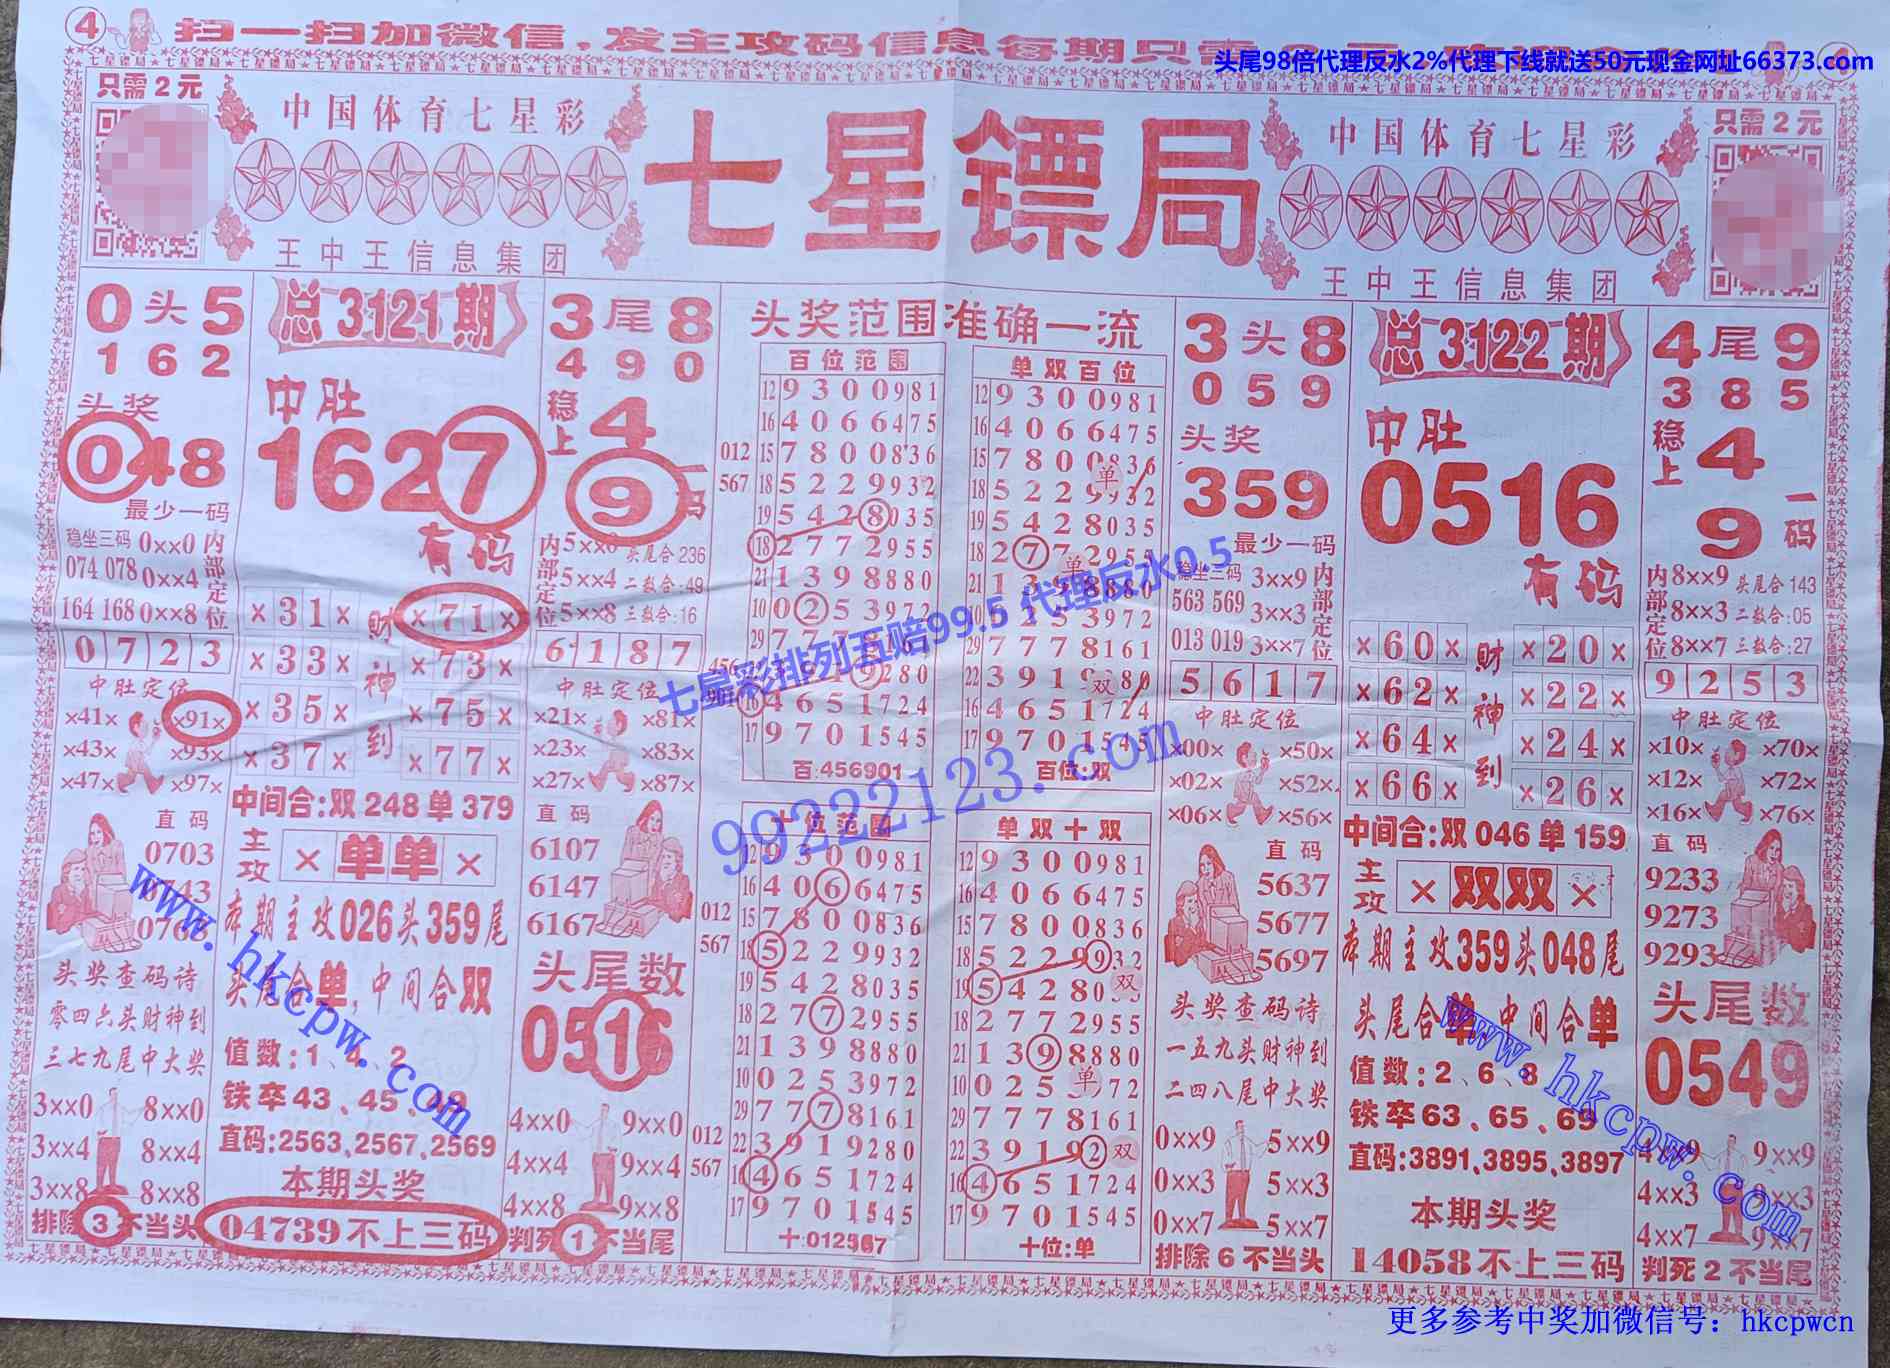 ④ 扫一扫加微信，发主攻码信息每期只需
头尾98倍代理反水2%代理下线就送50元现金网址66373.com
只需2元
中国体育七星彩
王中王信息集团
七星镖局
中国体育七星彩
王中王信息集团
只需2元
0头5
162
头奖
048
最少一码
稳坐三码 0xx0
074 078 0xx4
164 168 0xx8
内部定位
0723
中肚定位
×41× ×91×
×43× ×93×
×47× ×97×
直码
0703
0743
头奖查码诗
零四六头财神到
三七九尾中大奖
3xx0 8xx0
3xx4 8xx4
3xx8 8xx8
排除3不当头
总3121期
中肚
1627
有码
×31× ×71×
×33× ×73×
×35× ×75×
×37× ×77×
财神到
中间合:双248单379
主攻 ×单单×
本期主攻026头359尾
头尾合单,中间合双
值数:1、4、2
铁卒43、45、49
直码:2563,2567,2569
本期头奖
04739不上三码
3尾8
490
稳上
4
9
一码
内部定位
5xx0 头尾合236
5xx4 二数合:49
5xx8 三数合:16
6187
中肚定位
×21× ×81×
×23× ×83×
×27× ×87×
直码
6107
6147
6167
头尾数
0516
4xx0 9xx0
4xx4 9xx4
4xx8 9xx8
判死1不当尾
头奖范围准确一流
百位范围
12 9300981
16 4066475
012 15 7800836
567 18 5229932
19 5428035
18 2772955
21 1398880
10 0253972
16 4651724
17 9701545
百:456901
单双百位
12 9300981
16 4066475
15 7800836
18 5229932
19 5428035
18 2772955
21 1398880
29 7778161
22 3919280
16 4651724
17 9701545
百位:双
十位范围
12 9300981
16 4066475
15 7800836
18 5229932
19 5428035
18 2772955
21 1398880
10 0253972
29 7778161
22 3919280
16 4651724
17 9701545
012
567
012
567
十:012567
单双十双
12 9300981
16 4066475
15 7800836
18 5229932
19 5428035
18 2772955
21 1398880
10 0253972
29 7778161
22 3919280
16 4651724
17 9701545
十位:单
3头8
059
头奖
359
最少一码
稳坐三码 3xx9
563 569 3xx3
013 019 3xx7
内部定位
5617
中肚定位
×00× ×50×
×02× ×52×
×06× ×56×
直码
5637
5677
5697
头奖查码诗
一五九头财神到
二四八尾中大奖
0xx9 5xx9
0xx3 5xx3
0xx7 5xx7
排除6不当头
总3122期
中肚
0516
有码
×60× ×20×
×62× ×22×
×64× ×24×
×66× ×26×
财神到
中间合:双046单159
主攻 ×双双×
本期主攻359头048尾
头尾合单,中间合单
值数:2、6、8
铁卒63、65、69
直码:3891,3895,3897
本期头奖
14058不上三码
4尾9
385
稳上
4
9
一码
内部定位
8xx9 头尾合143
8xx3 二数合:05
8xx7 三数合:27
9253
中肚定位
×10× ×70×
×12× ×72×
×16× ×76×
直码
9233
9273
9293
头尾数
0549
4xx9 9xx9
4xx3 9xx3
4xx7 9xx7
判死2不当尾
七星彩排列五赔99.5 代理反水0.5
99222123.com
www.hkcpw.com
www.hkcpw.com
更多参考中奖加微信号：hkcpwcn